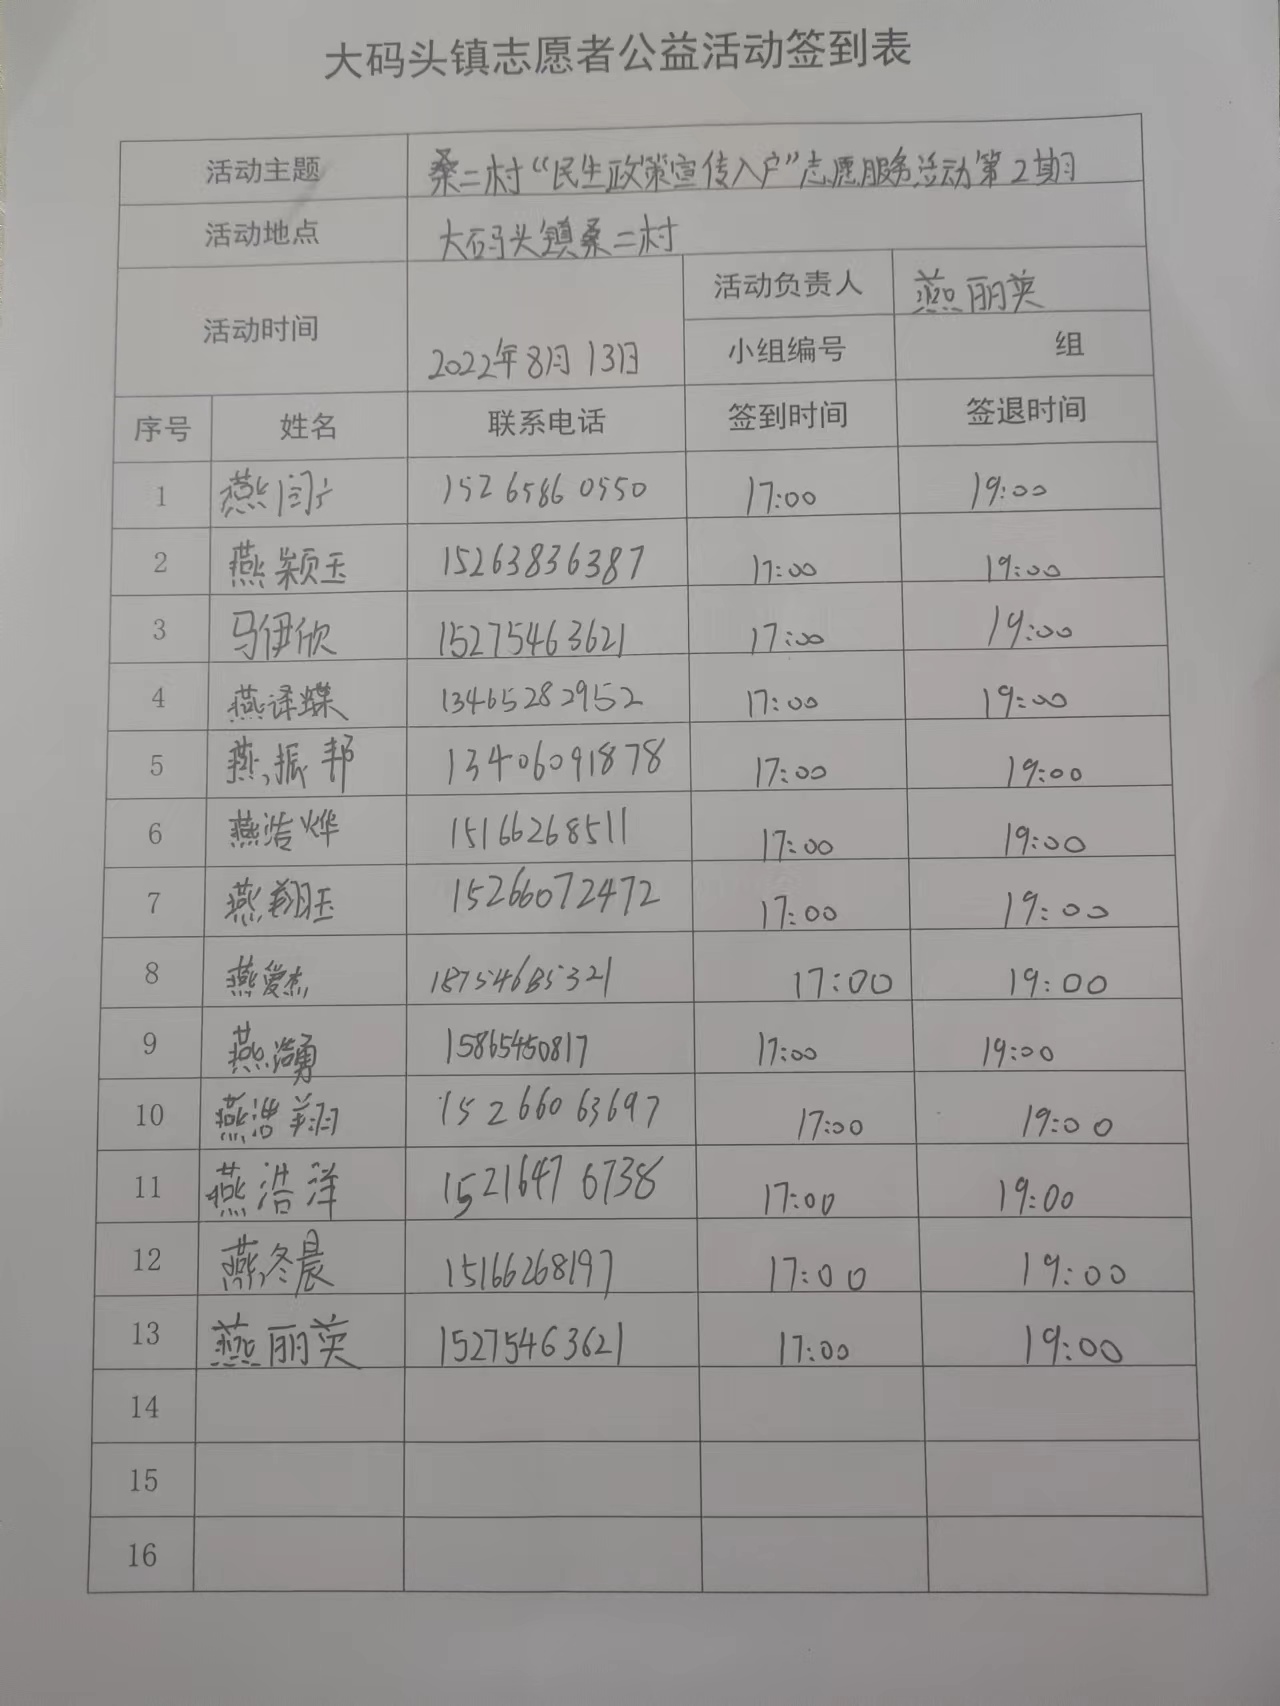 大码头镇志愿者公益活动签到表
活动主题 桑二村“民生政策宣传入户”志愿服务活动第2期
活动地点 大码头镇桑二村
活动时间 2022年8月13日 活动负责人 燕丽英
小组编号 组
序号 姓名 联系电话 签到时间 签退时间
1 燕 15265860550 17:00 19:00
2 燕颖玉 15263836387 17:00 19:00
3 马伊欣 15275463621 17:00 19:00
4 燕译蝶 13465282952 17:00 19:00
5 燕振邦 13406091878 17:00 19:00
6 燕浩烨 15166268511 17:00 19:00
7 燕翔玉 15266072472 17:00 19:00
8 燕爱杰 17:00 19:00
9 燕浩勇 15865450817 17:00 19:00
10 燕浩翔 15266063697 17:00 19:00
11 燕浩洋 15216476738 17:00 19:00
12 燕冬晨 15166268197 17:00 19:00
13 燕丽英 15275463621 17:00 19:00
14
15
16